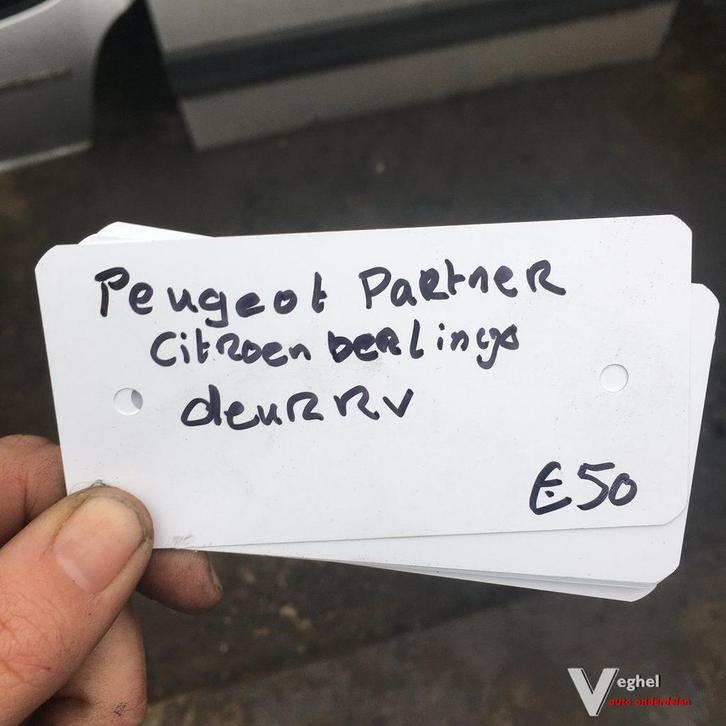 Peugeot Partner
Citroen berlingo
deur RV
€50
Veghel
auto onderdelen